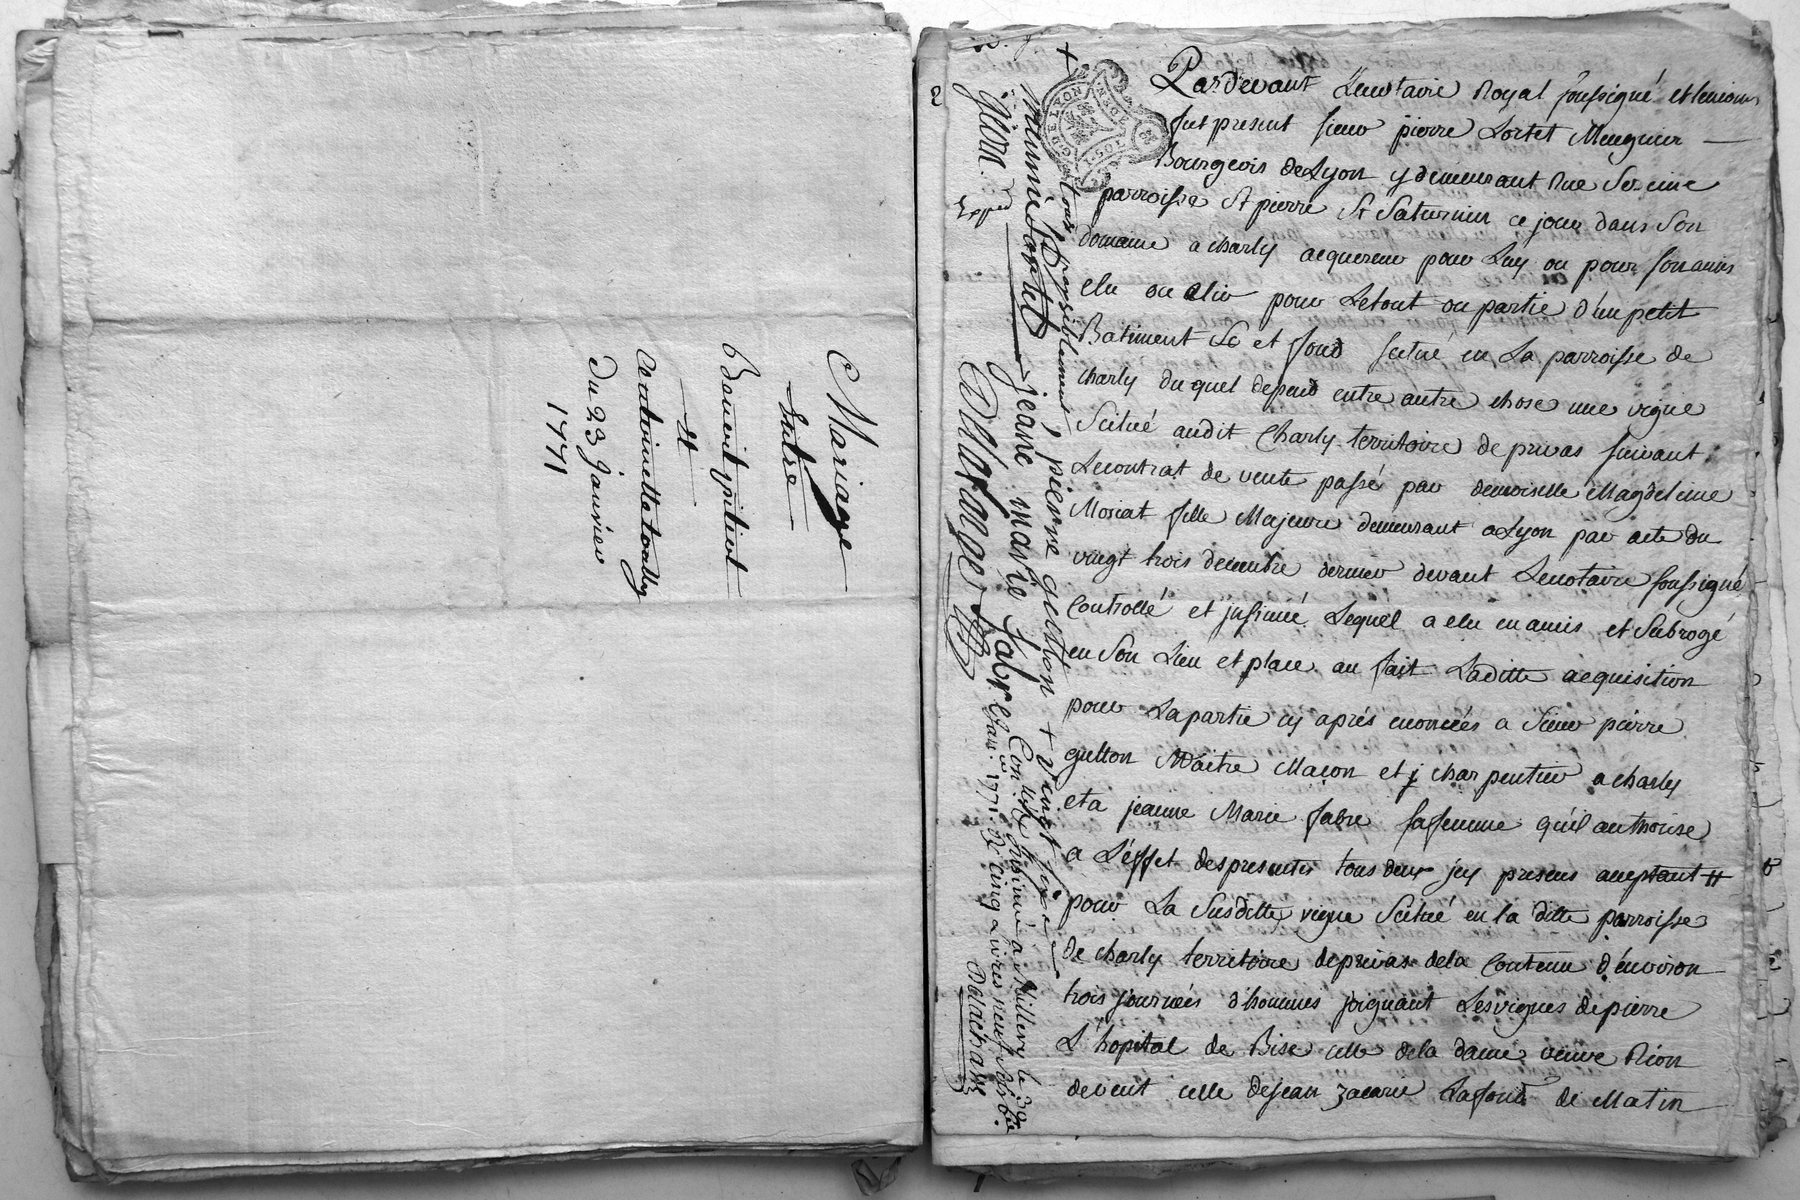 Mariage
Entre
Benoit pitiot
Et
Du 23 Janvier
1771
2
Pardevant Lenotaire Royal soussigné et temoins
fut present sieur pierre Lortet Meugnier
Bourgeois de Lyon y demeurant Rue Sereine
parroisse St pierre St Saturnin ce jour dans Son
domaine a charly acquereur pour Luy ou pour son amis
elu ou Elir pour Letout ou partie d'un petit
Batiment et fond scitué en La parroisse de
charly duquel depend entre autre chose une vigne
Scitué audit Charly territoire de privas suivant
Lecontrat de vente passé par demoiselle Magdeleine
Moriat fille Majeure demeurant a Lyon par acte du
vingt trois decembre dernier devant Lenotaire soussigné
Controllé et insinué Lequel a elu en amis et Subrogé
en Son Lieu et place au fait Laditte acquisition
pour Lapartie cy aprés enoncées a Sieur pierre
gullon Maitre Macon et charpentier a charly
et a jeanne Marie fabre sa femme qu'il authorise
a L'effet des presentes tous deux jcy presens acceptant
pour La Susditte vigne Scitué en la ditte parroisse
de charly territoire de privas dela Contenue d'environ
trois journées d'hommes joignant Lesvignes de pierre
L'hopital de Bise celle dela dame veuve Rion
devent celle dejean zacarie Lafond de Matin
tous paysiblement, pierre gullon + vingt six
munie Lortet jeane marie fabre